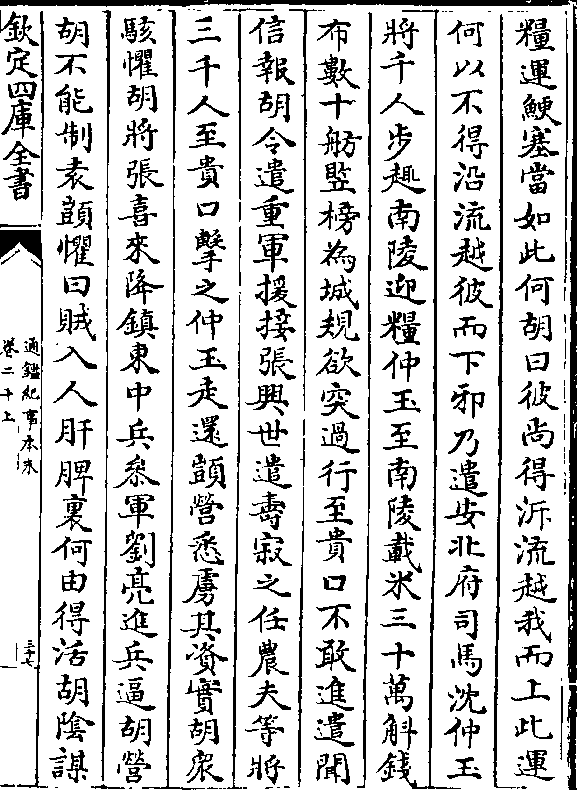 糧運鯁塞當如此何胡曰彼尚得泝流越我而上此運
何以不得沿流越彼而下邪乃遣安北府司馬沈仲玉
將千人步趣南陵迎糧仲玉至南陵載米三十萬斛錢
布數十舫豎榜為城規欲突過行至貴口不敢進遣聞
信報胡令遣重軍援接張興世遣壽寂之任農夫等將
三千人至貴口擊之仲玉走還顗營悉虜其資實胡衆
駭懼胡將張喜來降鎮東中兵參軍劉亮進兵逼胡營
胡不能制袁顗懼曰賊入人肝脾裏何由得活胡陰謀
欽定四庫全書
通鑑紀事本末
卷二十上
三十七